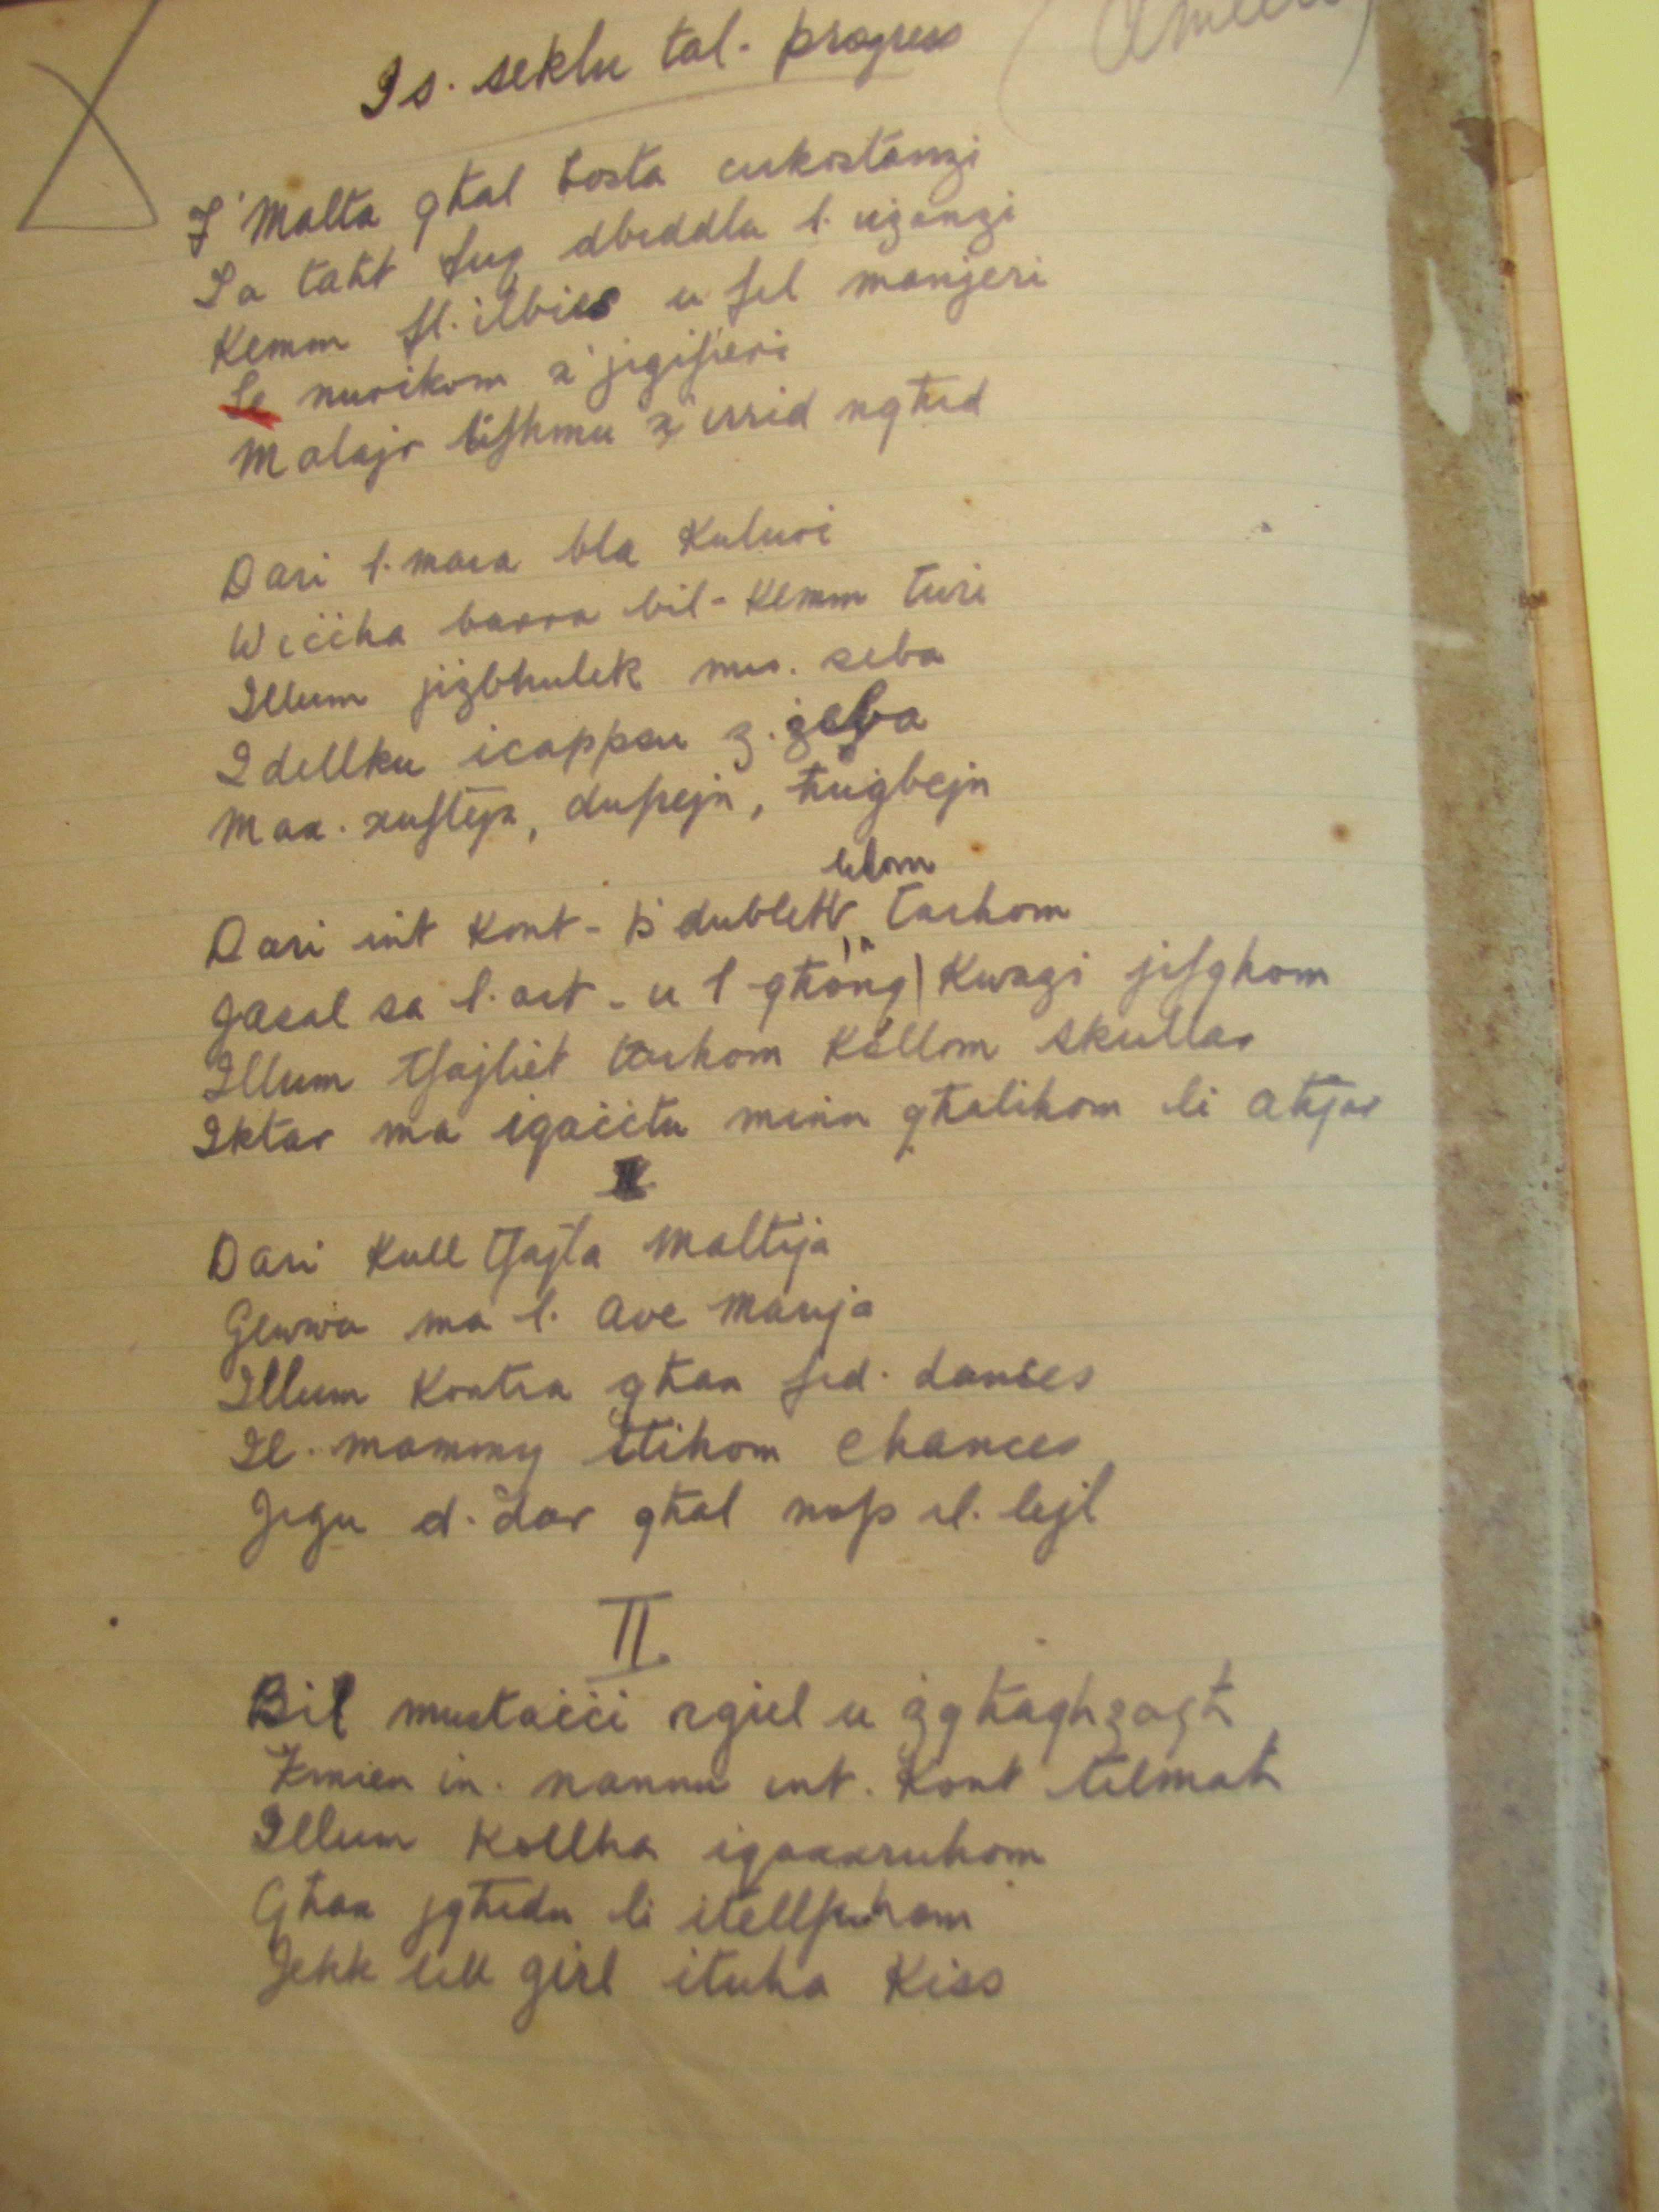 Is. seklu tal- progress
F'Malta għal bosta cirkostanzi
Sa taħt fuq dbiddlu l. użanzi
Kemm fl. ilbies u fil manjeri
Se nurikom x'jiġifieri
Malajr tifhmu x'irrid ngħid
Dari l. mara bla kuluri
Wiċċha barra bil- kemm turi
Illum jiżbhulek nis. seba
I dellku icappsu ż. żeba
Max. xufftejn, dufrejn, ħuġbejn
Dari int kont - b'dublett tarhom
ilhom
Jasal sa l. art - u l għonq kważi jisghom
Illum tfajliet tarhom kollom skullar
Iktar ma igaċċtu minn għalihom li aħjar
Dari kull tfajla Maltija
Ġewwa ma l. Ave Marija
Illum kontra għax fid. dances
Il. mammy ttihom chances
Jiġu d. dar għal nofs il. lejl
II.
Bil mustaċċi rġiel u żgħażagħ
Żmien in. nannu int. kont tilmaħ
Illum kollha iqaxxruhom
Għax jgħidu li itellfuhom
Jekk lill girl ituha kiss